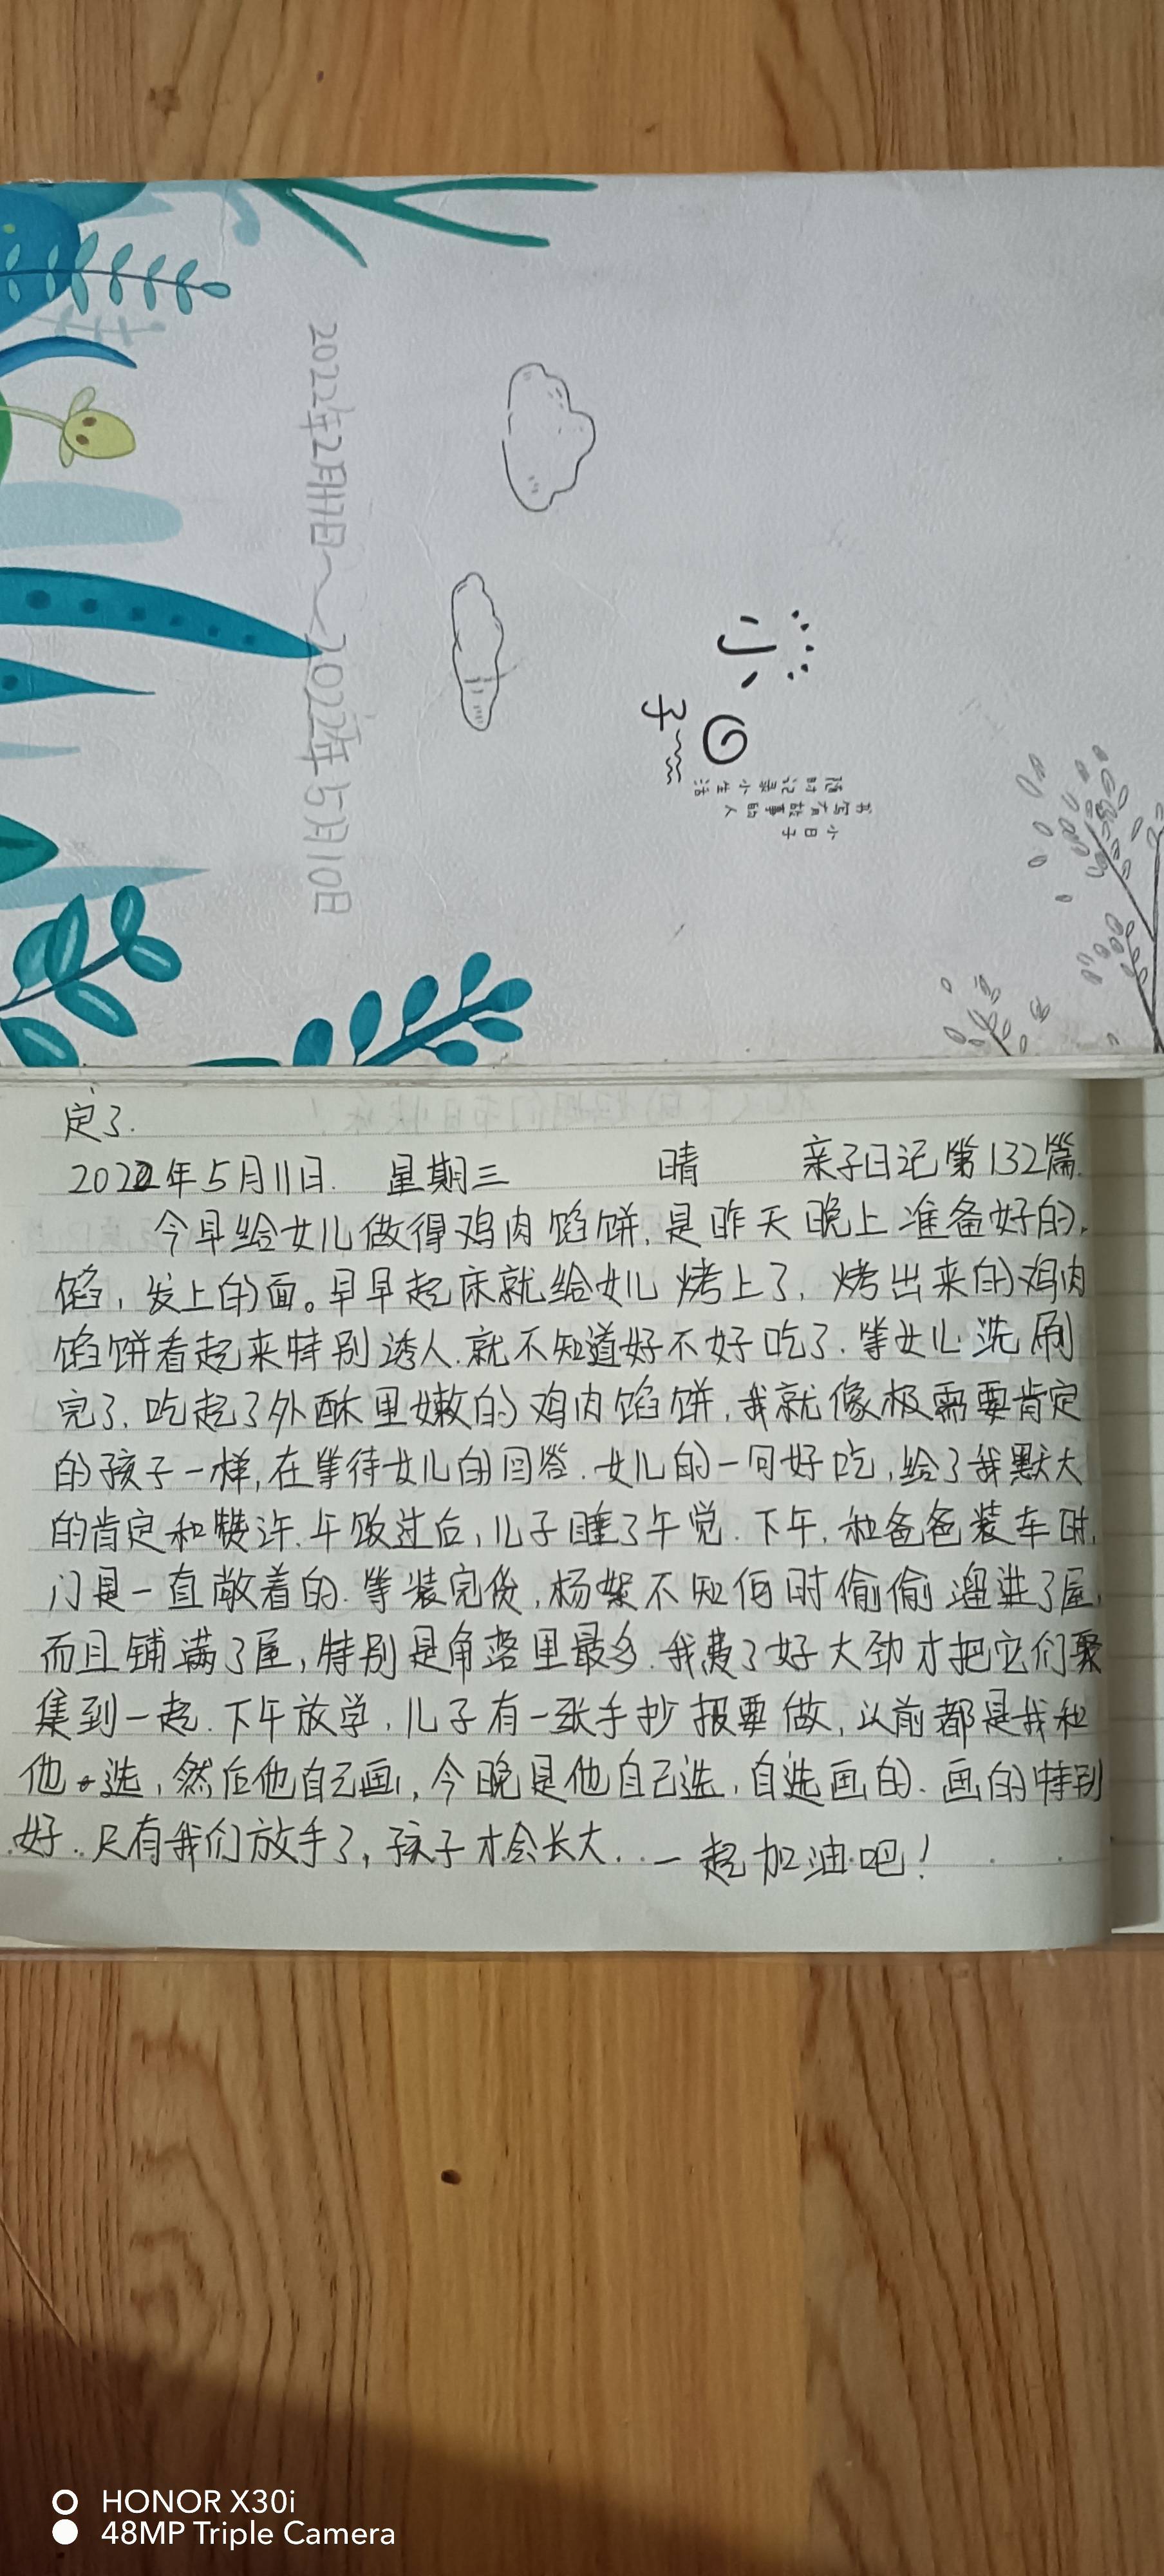 2022年2月17日~2022年5月10日
小
日
子
随时记录小生活
书写有故事的人
小日子
定了.
2022年5月11日. 星期三 晴 亲子日记第132篇.
今早给女儿做得鸡肉馅饼,是昨天晚上准备好的.
馅,发上的面。早早起床就给女儿烤上了,烤出来的鸡肉
馅饼看起来特别诱人.就不知道好不好吃了.等女儿洗刷
完了.吃起了外酥里嫩的鸡肉馅饼,我就像极需要肯定
的孩子一样,在等待女儿的回答.女儿的一句好吃,给了我默大
的肯定和赞许.午饭过后,儿子睡了午觉.下午,和爸爸装车时,
门是一直敞着的.等装完货,杨絮不知何时偷偷溜进了屋,
而且铺满了屋,特别是角落里最多.我费了好大劲才把它们聚
集到一起.下午放学,儿子有一张手抄报要做,以前都是我和
他选,然后他自己画,今晚是他自己选,自选画的.画的特别
好.只有我们放手了,孩子才会长大..一起加油吧!
HONOR X30i
48MP Triple Camera